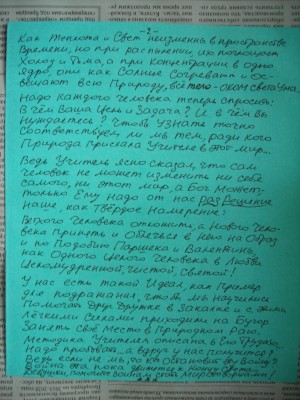 -2-
Как Теплота и Свет неизменна в пространстве
Времени, но при распылении, их поглощает
Холод и Тьма, а при концентрации в одно
Ядро, они как Солнце Согревает и ос-
вещают всю Природу, всё тело - оком света Ума.
Надо каждого человека теперь спросить:
В чём Ваша Цель и Задача? И в чём Вы
Нуждаетесь? Чтобы Узнать точно
Соответствует ли мы тем, ради кого
Природа Прислала Учителя в Этот мир...
Ведь Учитель ясно сказал, что сам
человек не может изменить ни себе
самого, ни этот мир, а Бог может -
только Ему надо от нас разрешение
Наше, как Твёрдое Намерение!
Ветхого Человека отложить, а Нового Чело-
века Принять и Облечься в Него на Образ
и по Подобию Паршека и Валентины
как Одного Целого Человека в Любви
Целомудренной, Чистой, Святой!
У нас есть такой Идеал, как Пример
для подражания, чтобы мы научились
Помогать Друг Дружке в Закалке и с этими
Лёгкими Силами приходить на Бугор
Занять своё Место в Природном Раю.
Методика Учителя описана в Его Трудах,
Надо пробовать, а вдруг у нас получится?
Ведь если не мы, то кто остановит эту Войну?
Война эта, пока движется к Концу Света.